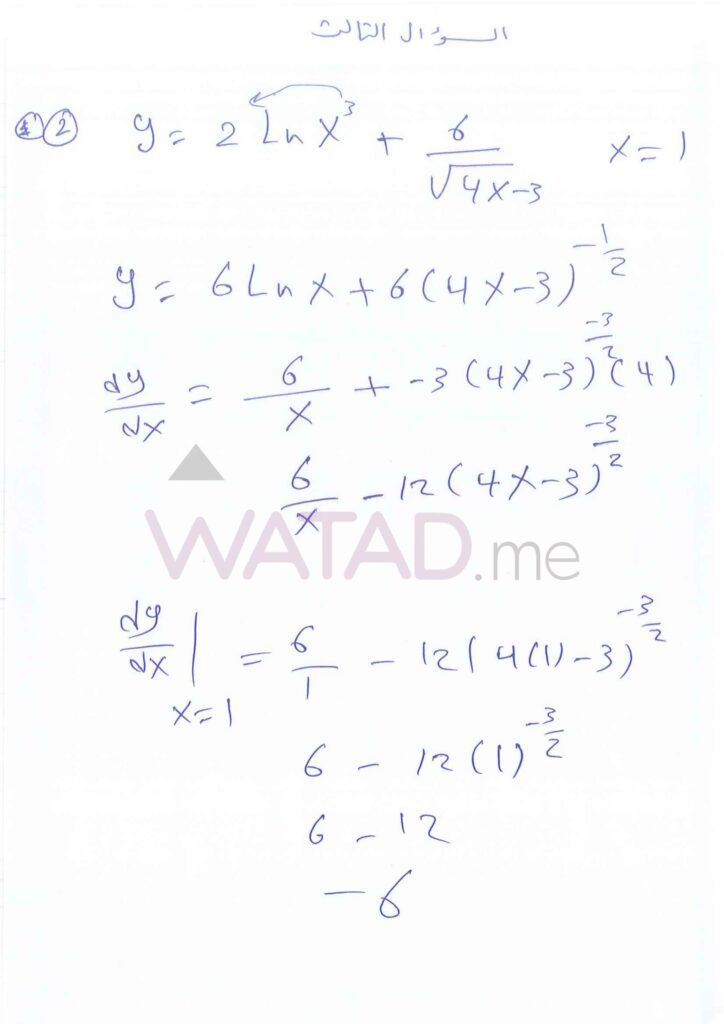 السؤال الثالث
② y = 2 Ln x³ + 6/√(4x-3) x = 1
y = 6 Ln x + 6(4x-3)^(-1/2)
dy/dx = 6/x + -3(4x-3)^(-3/2) (4)
6/x - 12(4x-3)^(-3/2)
WATAD.me
dy/dx | x=1 = 6/1 - 12(4(1)-3)^(-3/2)
6 - 12(1)^(-3/2)
6 - 12
-6